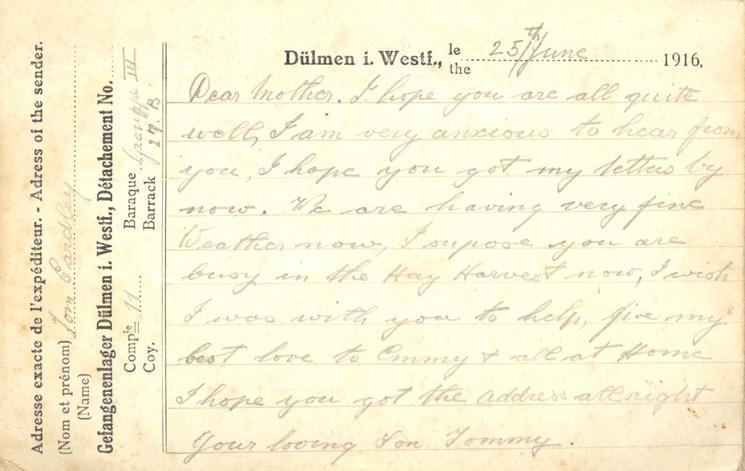 Adresse exacte de l'expéditeur. - Adress of the sender.
(Nom et prénom) Tom Pardley
(Name)
Gefangenenlager Dülmen i. Westf., Détachement No.
Compie 11 Baraque Grouppe III
Coy. Barrack 27.B
Dülmen i. Westf., le 25th June 1916.
the
Dear Mother. I hope you are all quite
well, I am very anxious to hear from
you, I hope you got my letters by
now. We are having very fine
Weather now, I supose you are
busy in the Hay Harvest now, I wish
I was with you to help, give my
best love to Emmy & all at Home
I hope you got the address allright
Your loving Son Tommy.